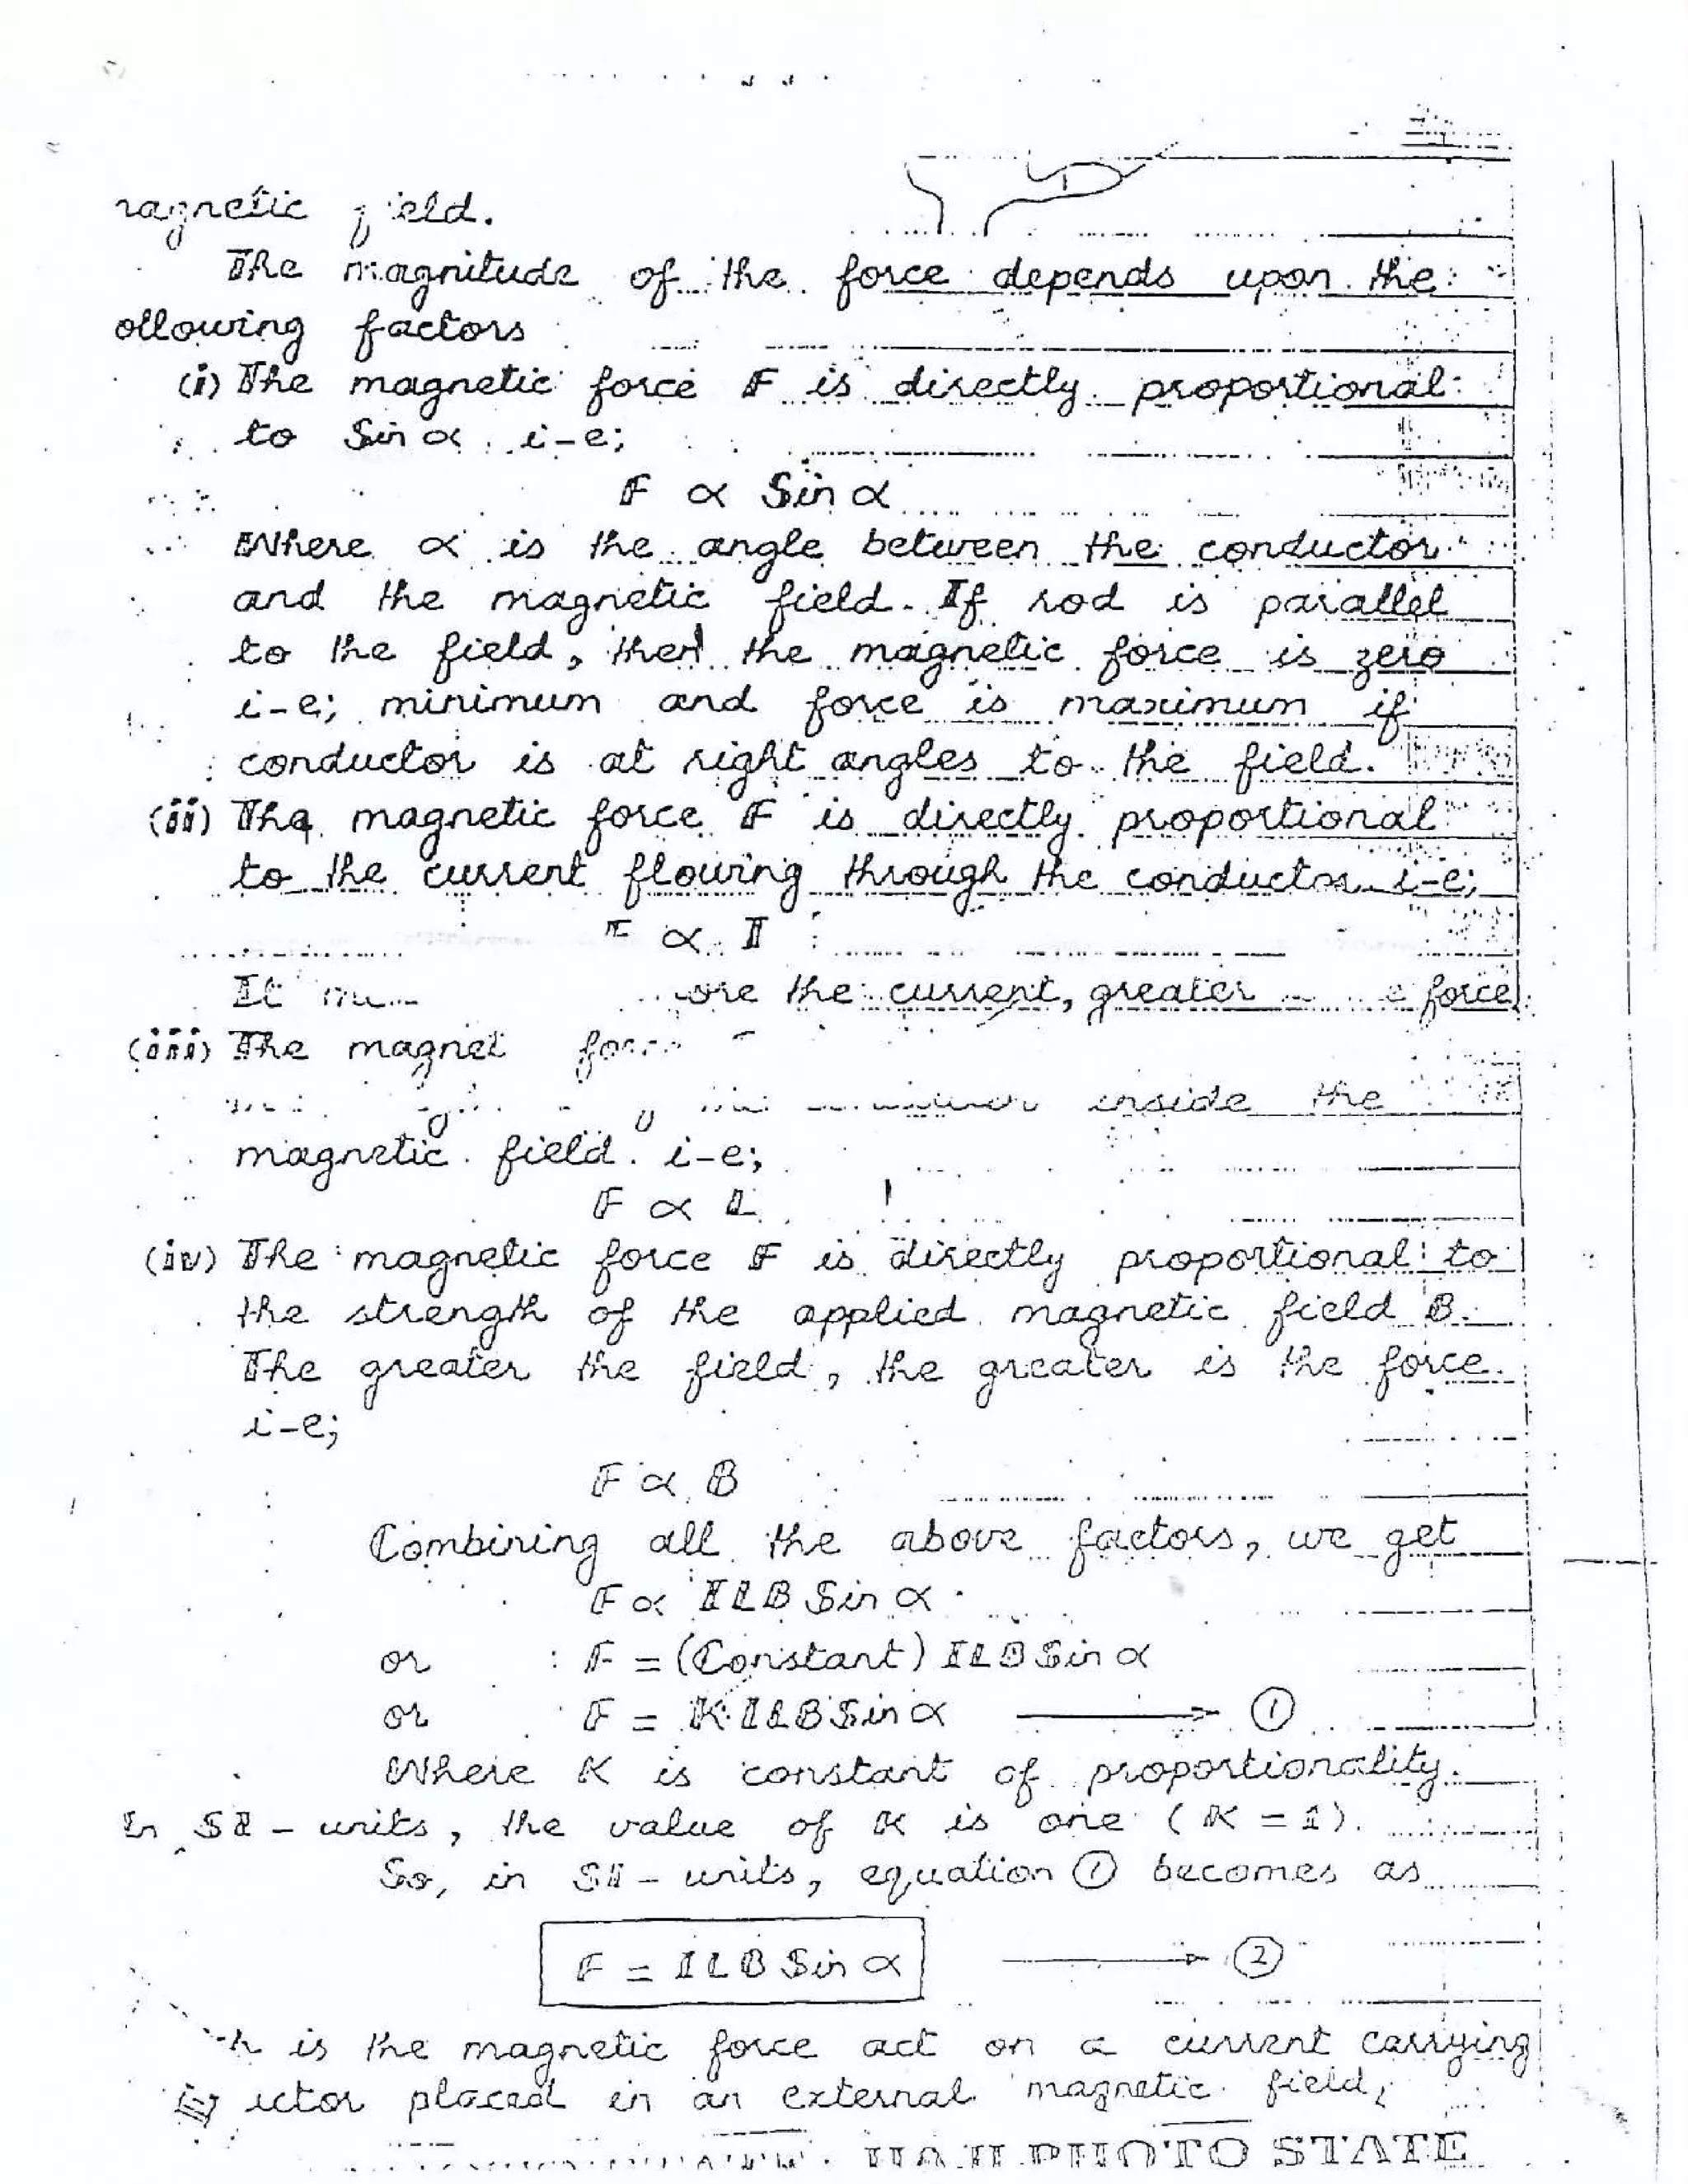 ragnetic field.
The magnitude of the force depends upon the
ollowing factors
(i) The magnetic force F is directly proportional
to Sin α i-e;
F ∝ Sin α
Where α is the angle between the conductor
and the magnetic field. If rod is parallel
to the field, then the magnetic force is zero
i-e; minimum and force is maximum if
conductor is at right angles to the field.
(ii) The magnetic force F is directly proportional
to the current flowing through the conductor i-e;
F ∝ I
It ore the current, greater force
(iii) The magnet force
inside the
magnetic field i-e;
F ∝ L
(iv) The magnetic force F is directly proportional to
the strength of the applied magnetic field B.
The greater the field, the greater is the force
i-e;
F ∝ B
Combining all the above factors, we get
F ∝ ILB Sin α
or F = (Constant) ILB Sin α
or F = K ILB Sin α → ①
Where K is constant of proportionality.
In SI - units, the value of K is one (K = 1).
So, in SI - units, equation ① becomes as
F = ILB Sin α → ②
h is the magnetic force act on a current carrying
uctor placed in an external magnetic field,
PHOTO STATE